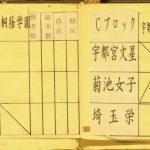 桐蔭学園
勝者数
総本数
得点
順位
Cブロック
宇都宮文星
菊池女子
埼玉栄